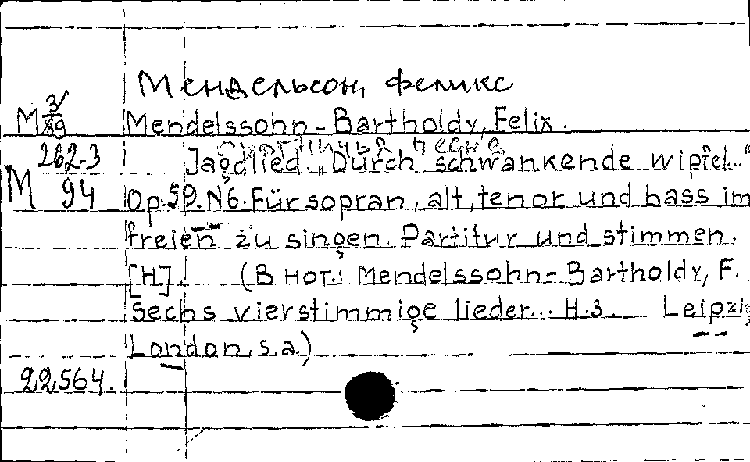 Мендельсон, Феликс
М 3/89 Mendelssohn-Bartholdy, Felix.
262-3 Jagdlied "Durch schwankende wipfel.."
М 94 Op.59.N6. Für sopran, alt, tenor und bass im
freien zu singen. Partitur und stimmen.
[Н]. (В нот.: Mendelssohn-Bartholdy, F.
Sechs vierstimmige lieder.. H.3. Leipzig
London, s.a.)
22564.